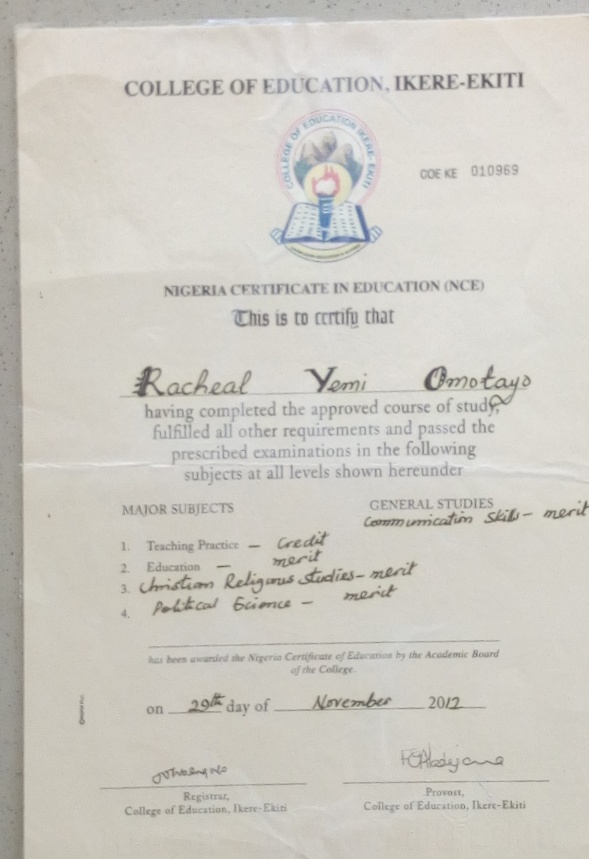 COLLEGE OF EDUCATION, IKERE-EKITI
COLLEGE OF EDUCATION IKERE-EKITI
COE KE 010969
NIGERIA CERTIFICATE IN EDUCATION (NCE)
This is to certify that
Racheal Yemi Omotayo
having completed the approved course of study,
fulfilled all other requirements and passed the
prescribed examinations in the following
subjects at all levels shown hereunder
MAJOR SUBJECTS
1. Teaching Practice - Credit
2. Education - merit
3. Christian Religious Studies - merit
4. Political Science - merit
GENERAL STUDIES
Communication Skills - merit
has been awarded the Nigeria Certificate of Education by the Academic Board
of the College.
on 29th day of November 2012
Registrar,
College of Education, Ikere-Ekiti
Provost,
College of Education, Ikere-Ekiti